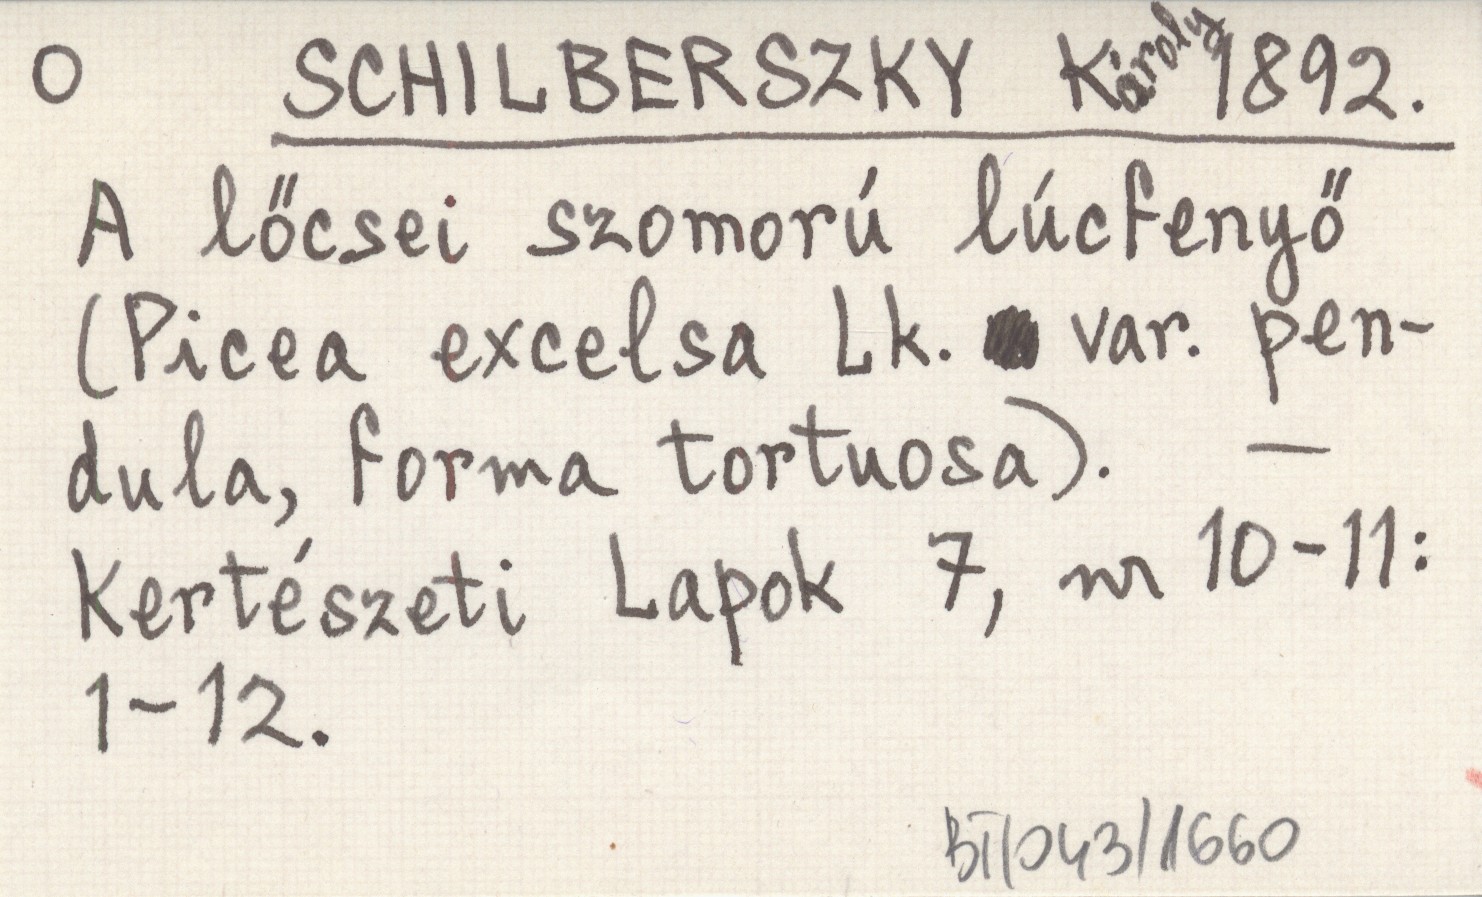 O SCHILBERSZKY Károly 1892.
A lőcsei szomorú lúcfenyő
(Picea excelsa Lk. var. pen-
dula, forma tortuosa). —
Kertészeti Lapok 7, nr 10-11:
1-12.
BI/043/1660